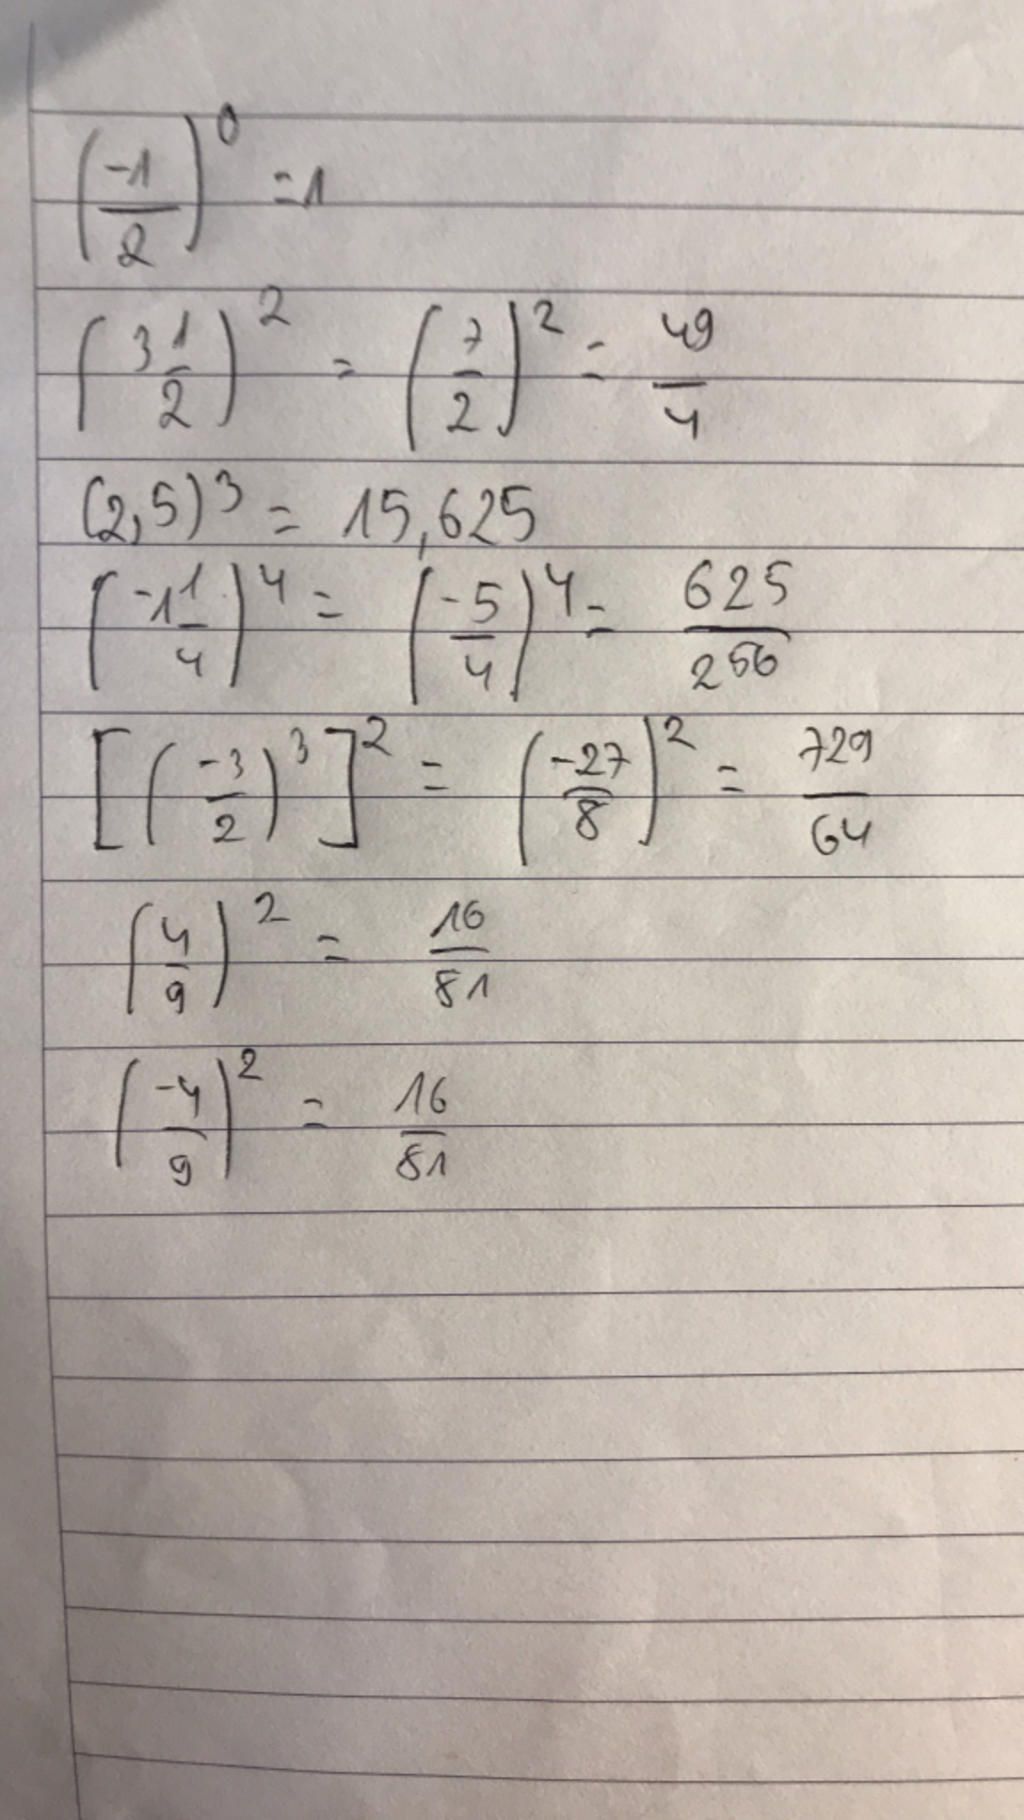 (-1/2)^0 = 1
(3 1/2)^2 = (7/2)^2 = 49/4
(2,5)^3 = 15,625
(-1 1/4)^4 = (-5/4)^4 = 625/256
[(-3/2)^3]^2 = (-27/8)^2 = 729/64
(4/9)^2 = 16/81
(-4/9)^2 = 16/81